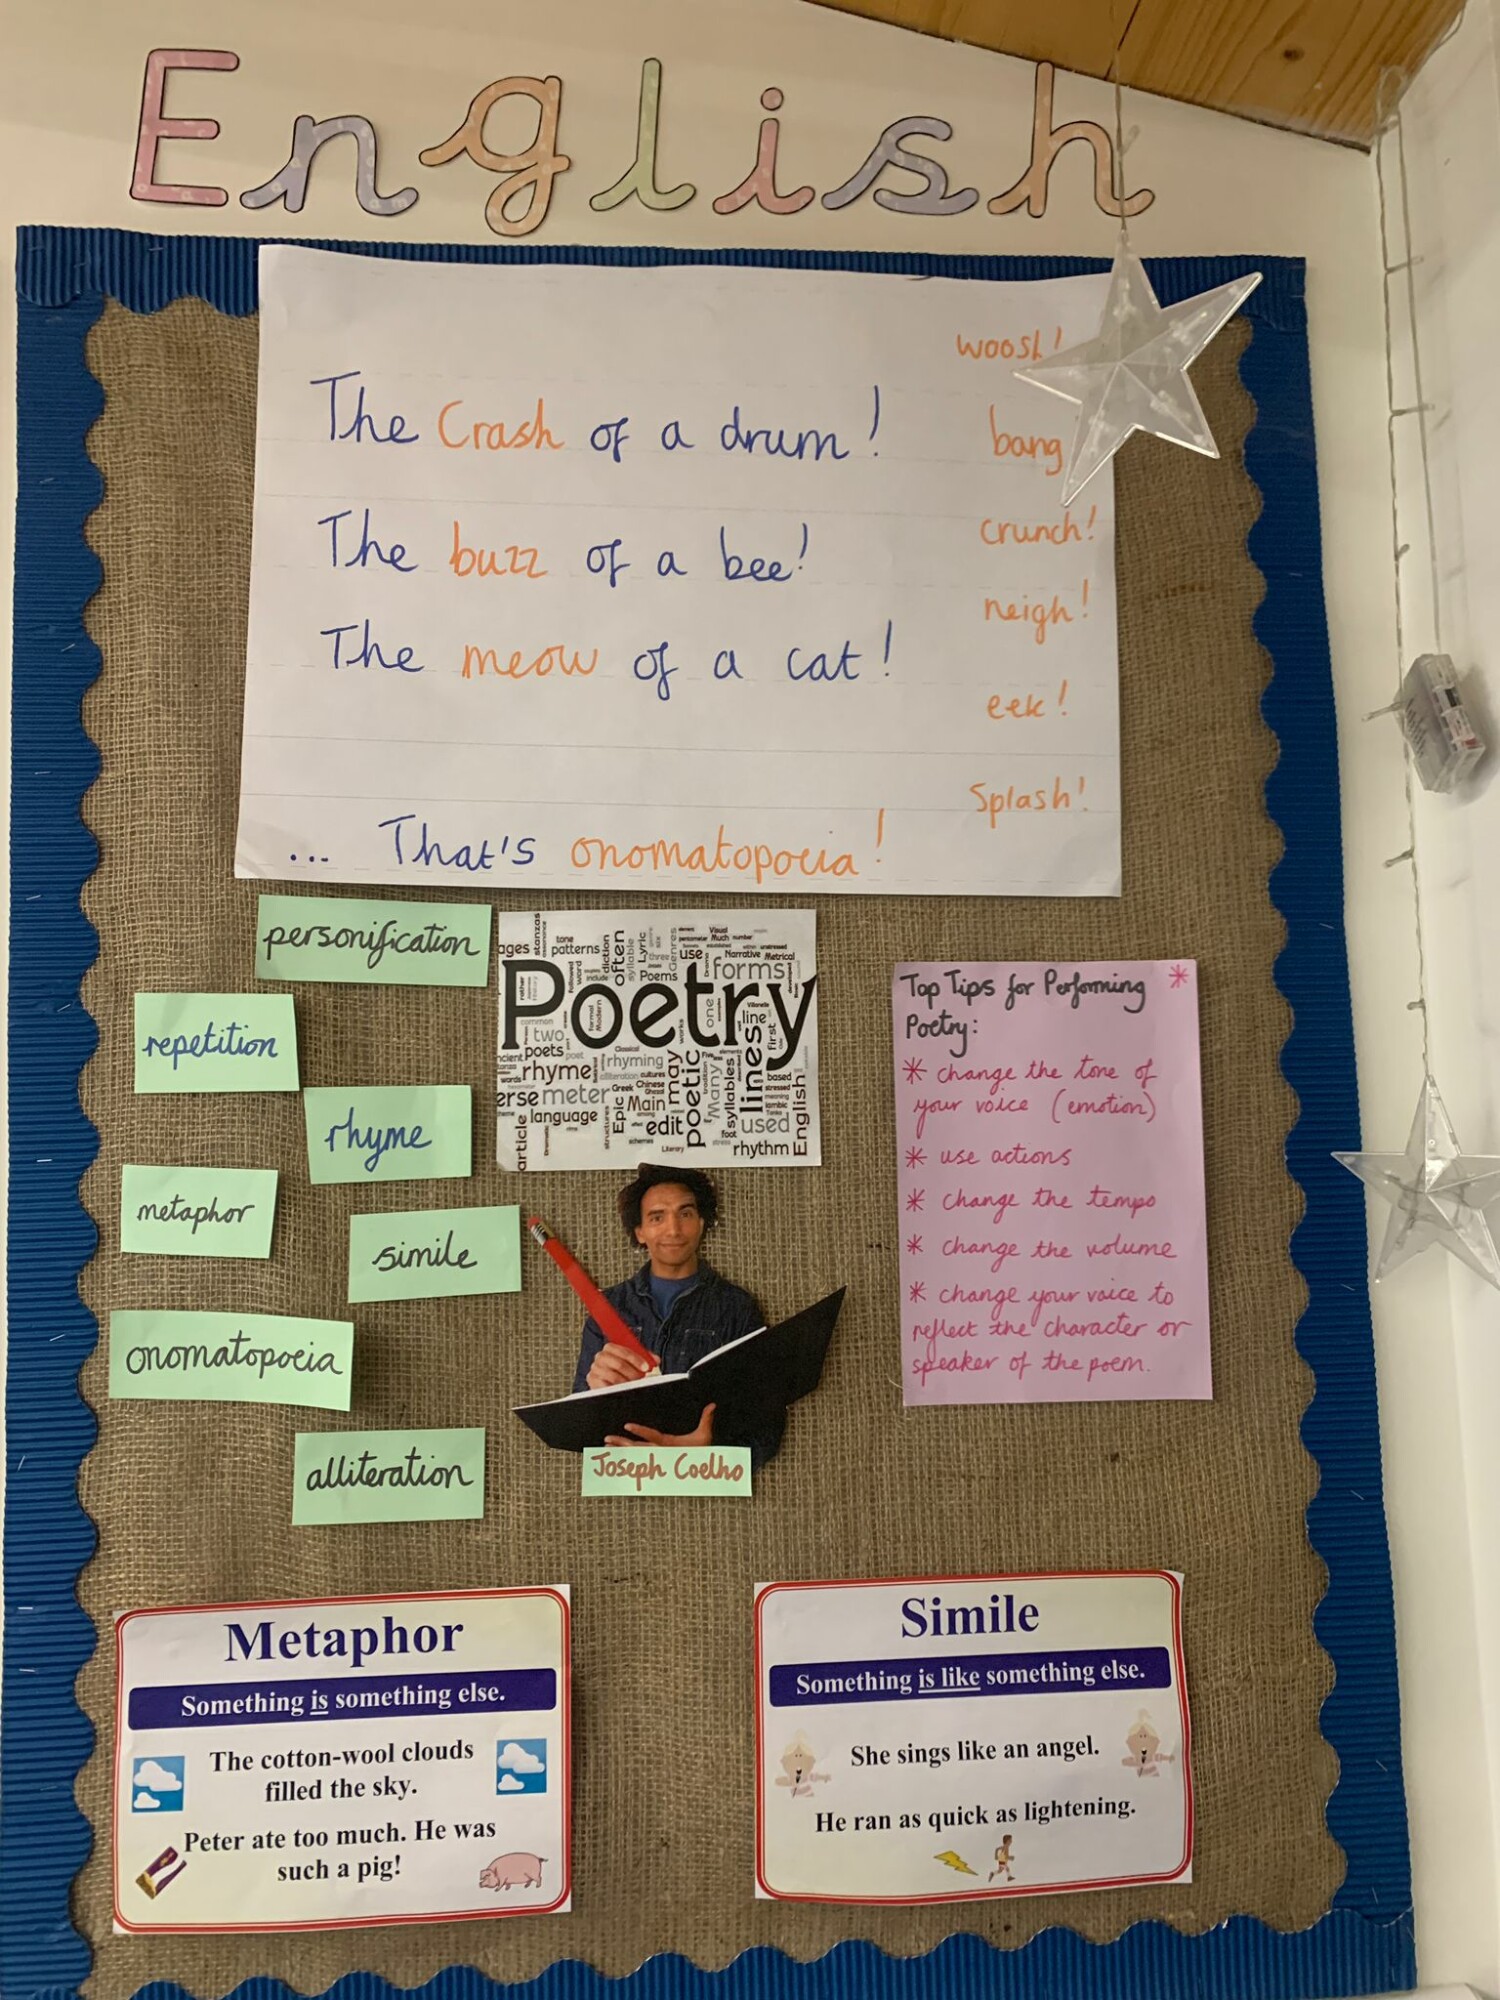 English
The Crash of a drum!
The buzz of a bee!
The meow of a cat!
... That's onomatopoeia!
woosh!
bang
crunch!
neigh!
eek!
Splash!
personification
repetition
rhyme
metaphor
simile
onomatopoeia
alliteration
Poetry
ages
stanzas
tone
patterns
diction
often
syllable
Lyric
three
Poems
Genres
use
Visual
Much
number
Narrative
Metrical
forms
common
two
poets
poet
rhyme
rhyming
erse meter
language
article
structures
Epic
Greek
Chinese
Main
may
edit
poetic
Many
syllables
lines
line
one
first
based
used
foot
rhythm
English
Literary
Classical
alliteration
cultures
Joseph Coelho
Top Tips for Performing
Poetry:
* change the tone of
your voice (emotion)
* use actions
* change the tempo
* change the volume
* change your voice to
reflect the character or
speaker of the poem.
Metaphor
Something is something else.
The cotton-wool clouds
filled the sky.
Peter ate too much. He was
such a pig!
Simile
Something is like something else.
She sings like an angel.
He ran as quick as lightening.